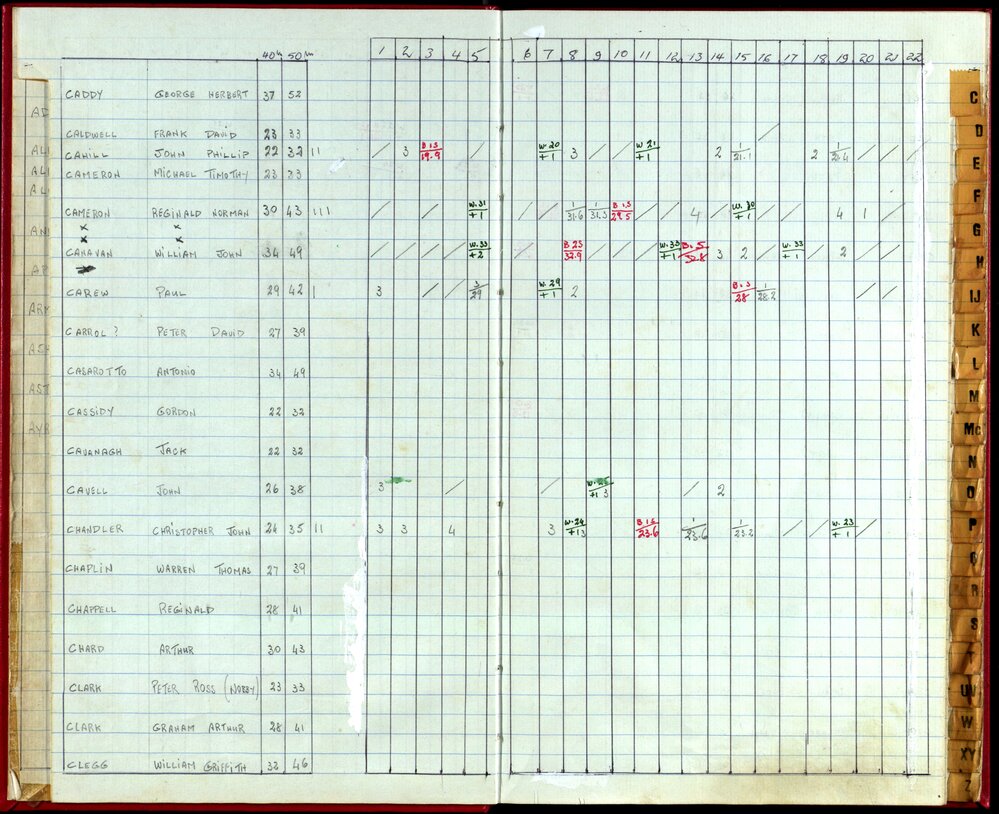 40m 50m 1 2 3 4 5 6 7 8 9 10 11 12 13 14 15 16 17 18 19 20 21 22
CADDY GEORGE HERBERT 37 52
CALDWELL FRANK DAVID 23 33 /
CAHILL JOHN PHILLIP 22 32 11 / 3 B 1S 19.9 / W. 20 +1 3 / / W 21 +1 2 1 21.1 2 1 21.4 / / /
CAMERON MICHAEL TIMOTHY 23 33
CAMERON REGINALD NORMAN 30 43 111 / / W. 31 +1 / / 1 31.6 1 31.3 B 1S 29.5 / / 4 W. 30 +1 / 4 1 /
x x
x x
CANAVAN WILLIAM JOHN 34 49 / / / / W. 33 +2 B 2S 32.9 / / / W. 33 +1 B. S 32.8 3 2 / W. 33 +1 / 2 /
CAREW PAUL 29 42 1 3 / / 3 29 W. 29 +1 2 B 1S 28 1 28.2 / /
CARROL ? PETER DAVID 27 39
CASAROTTO ANTONIO 34 49
CASSIDY GORDON 22 32
CAVANAGH JACK 22 32
CAVELL JOHN 26 38 3 / / W. 25 +1 3 / 2
CHANDLER CHRISTOPHER JOHN 24 35 11 3 3 4 3 W. 24 +1 3 B 1S 23.6 1 23.6 1 23.2 / / W. 23 +1 /
CHAPLIN WARREN THOMAS 27 39
CHAPPELL REGINALD 28 41
CHARD ARTHUR 30 43
CLARK PETER ROSS (NOBBY) 23 33
CLARK GRAHAM ARTHUR 28 41
CLEGG WILLIAM GRIFFITH 32 46
AD
AL
AL
AL
AN
AP
ARK
AST
C
D
E
F
G
H
IJ
K
L
M
Mc
N
O
P
Q
R
S
T
UV
W
XY
Z